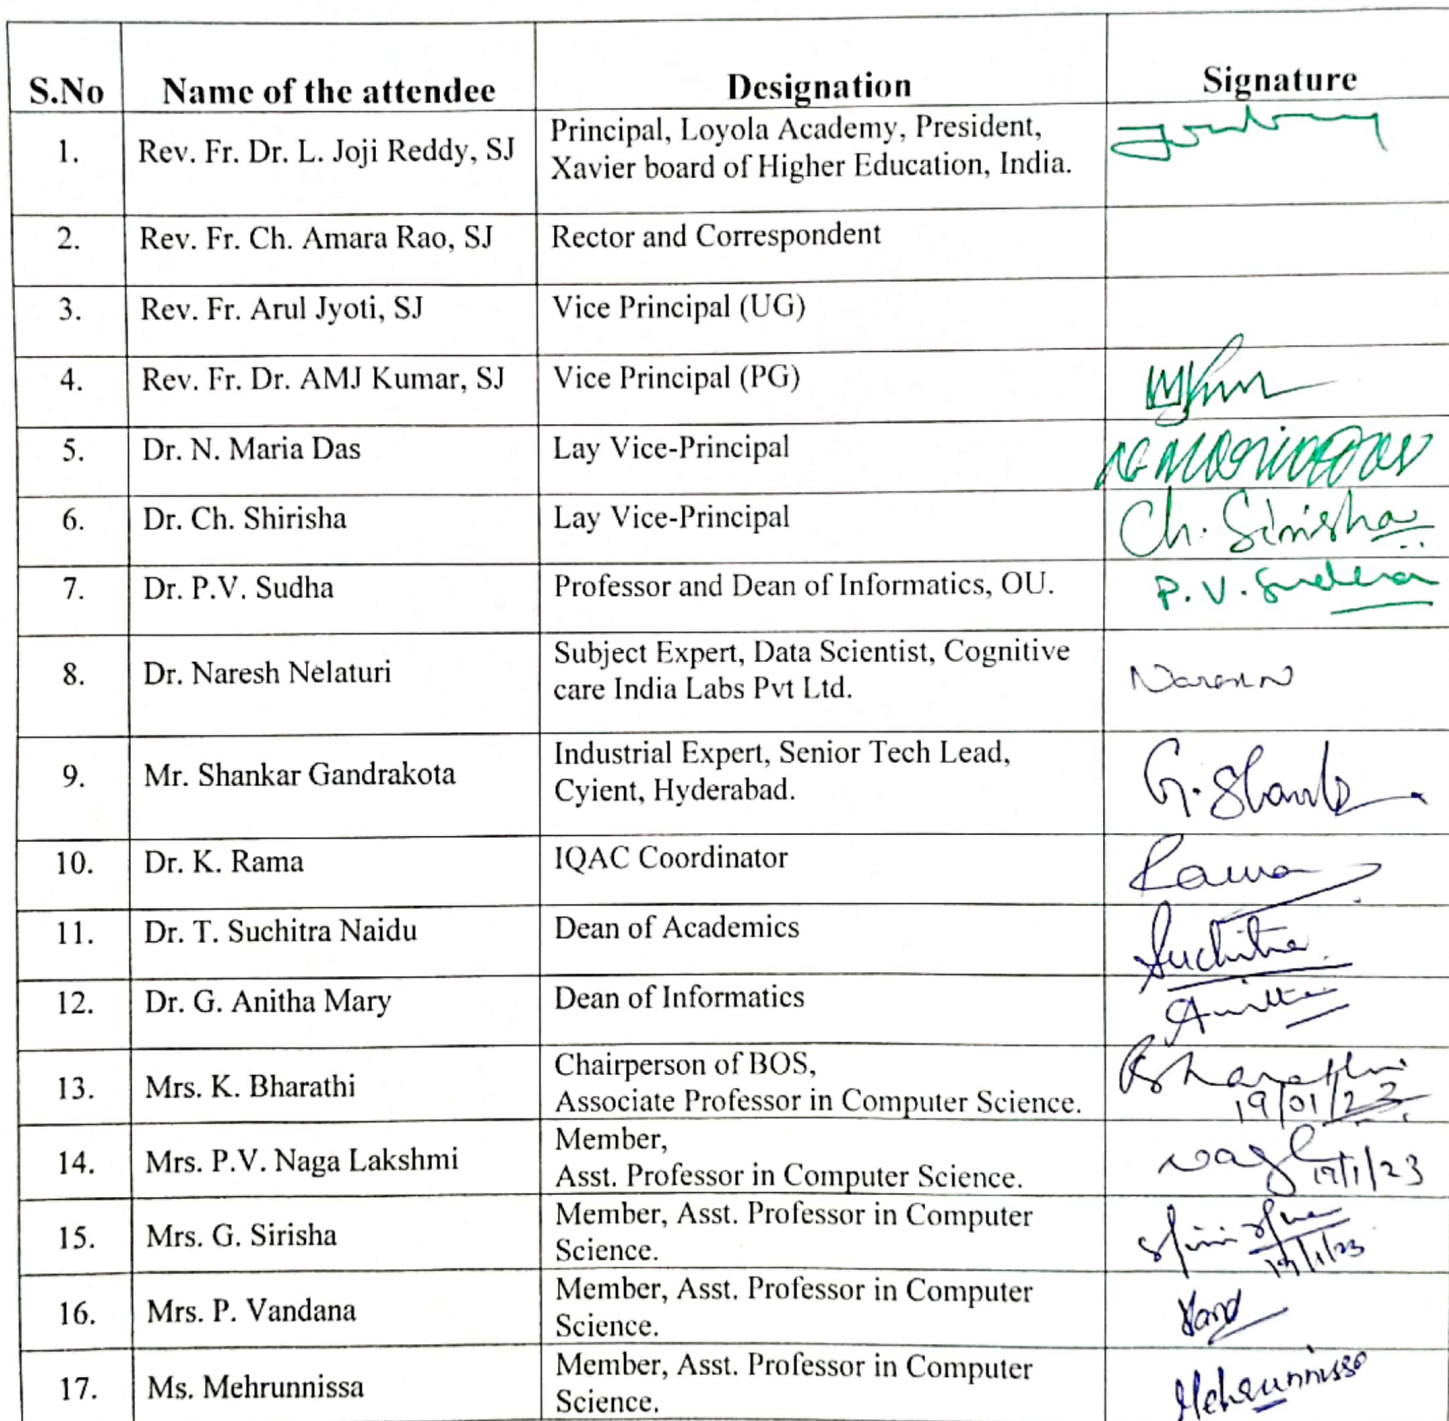 S.No Name of the attendee Designation Signature
1. Rev. Fr. Dr. L. Joji Reddy, SJ Principal, Loyola Academy, President,
Xavier board of Higher Education, India.
2. Rev. Fr. Ch. Amara Rao, SJ Rector and Correspondent
3. Rev. Fr. Arul Jyoti, SJ Vice Principal (UG)
4. Rev. Fr. Dr. AMJ Kumar, SJ Vice Principal (PG)
5. Dr. N. Maria Das Lay Vice-Principal
6. Dr. Ch. Shirisha Lay Vice-Principal Ch. Sirisha
7. Dr. P.V. Sudha Professor and Dean of Informatics, OU. P.V. Sudha
8. Dr. Naresh Nelaturi Subject Expert, Data Scientist, Cognitive
care India Labs Pvt Ltd.
9. Mr. Shankar Gandrakota Industrial Expert, Senior Tech Lead,
Cyient, Hyderabad. G. Shank
10. Dr. K. Rama IQAC Coordinator Rama
11. Dr. T. Suchitra Naidu Dean of Academics Suchitra
12. Dr. G. Anitha Mary Dean of Informatics Anitha
13. Mrs. K. Bharathi Chairperson of BOS,
Associate Professor in Computer Science. Bharathi
19/01/23
14. Mrs. P.V. Naga Lakshmi Member,
Asst. Professor in Computer Science. 19/1/23
15. Mrs. G. Sirisha Member, Asst. Professor in Computer
Science. 19/1/23
16. Mrs. P. Vandana Member, Asst. Professor in Computer
Science. Vand
17. Ms. Mehrunnissa Member, Asst. Professor in Computer
Science. Mehrunnissa